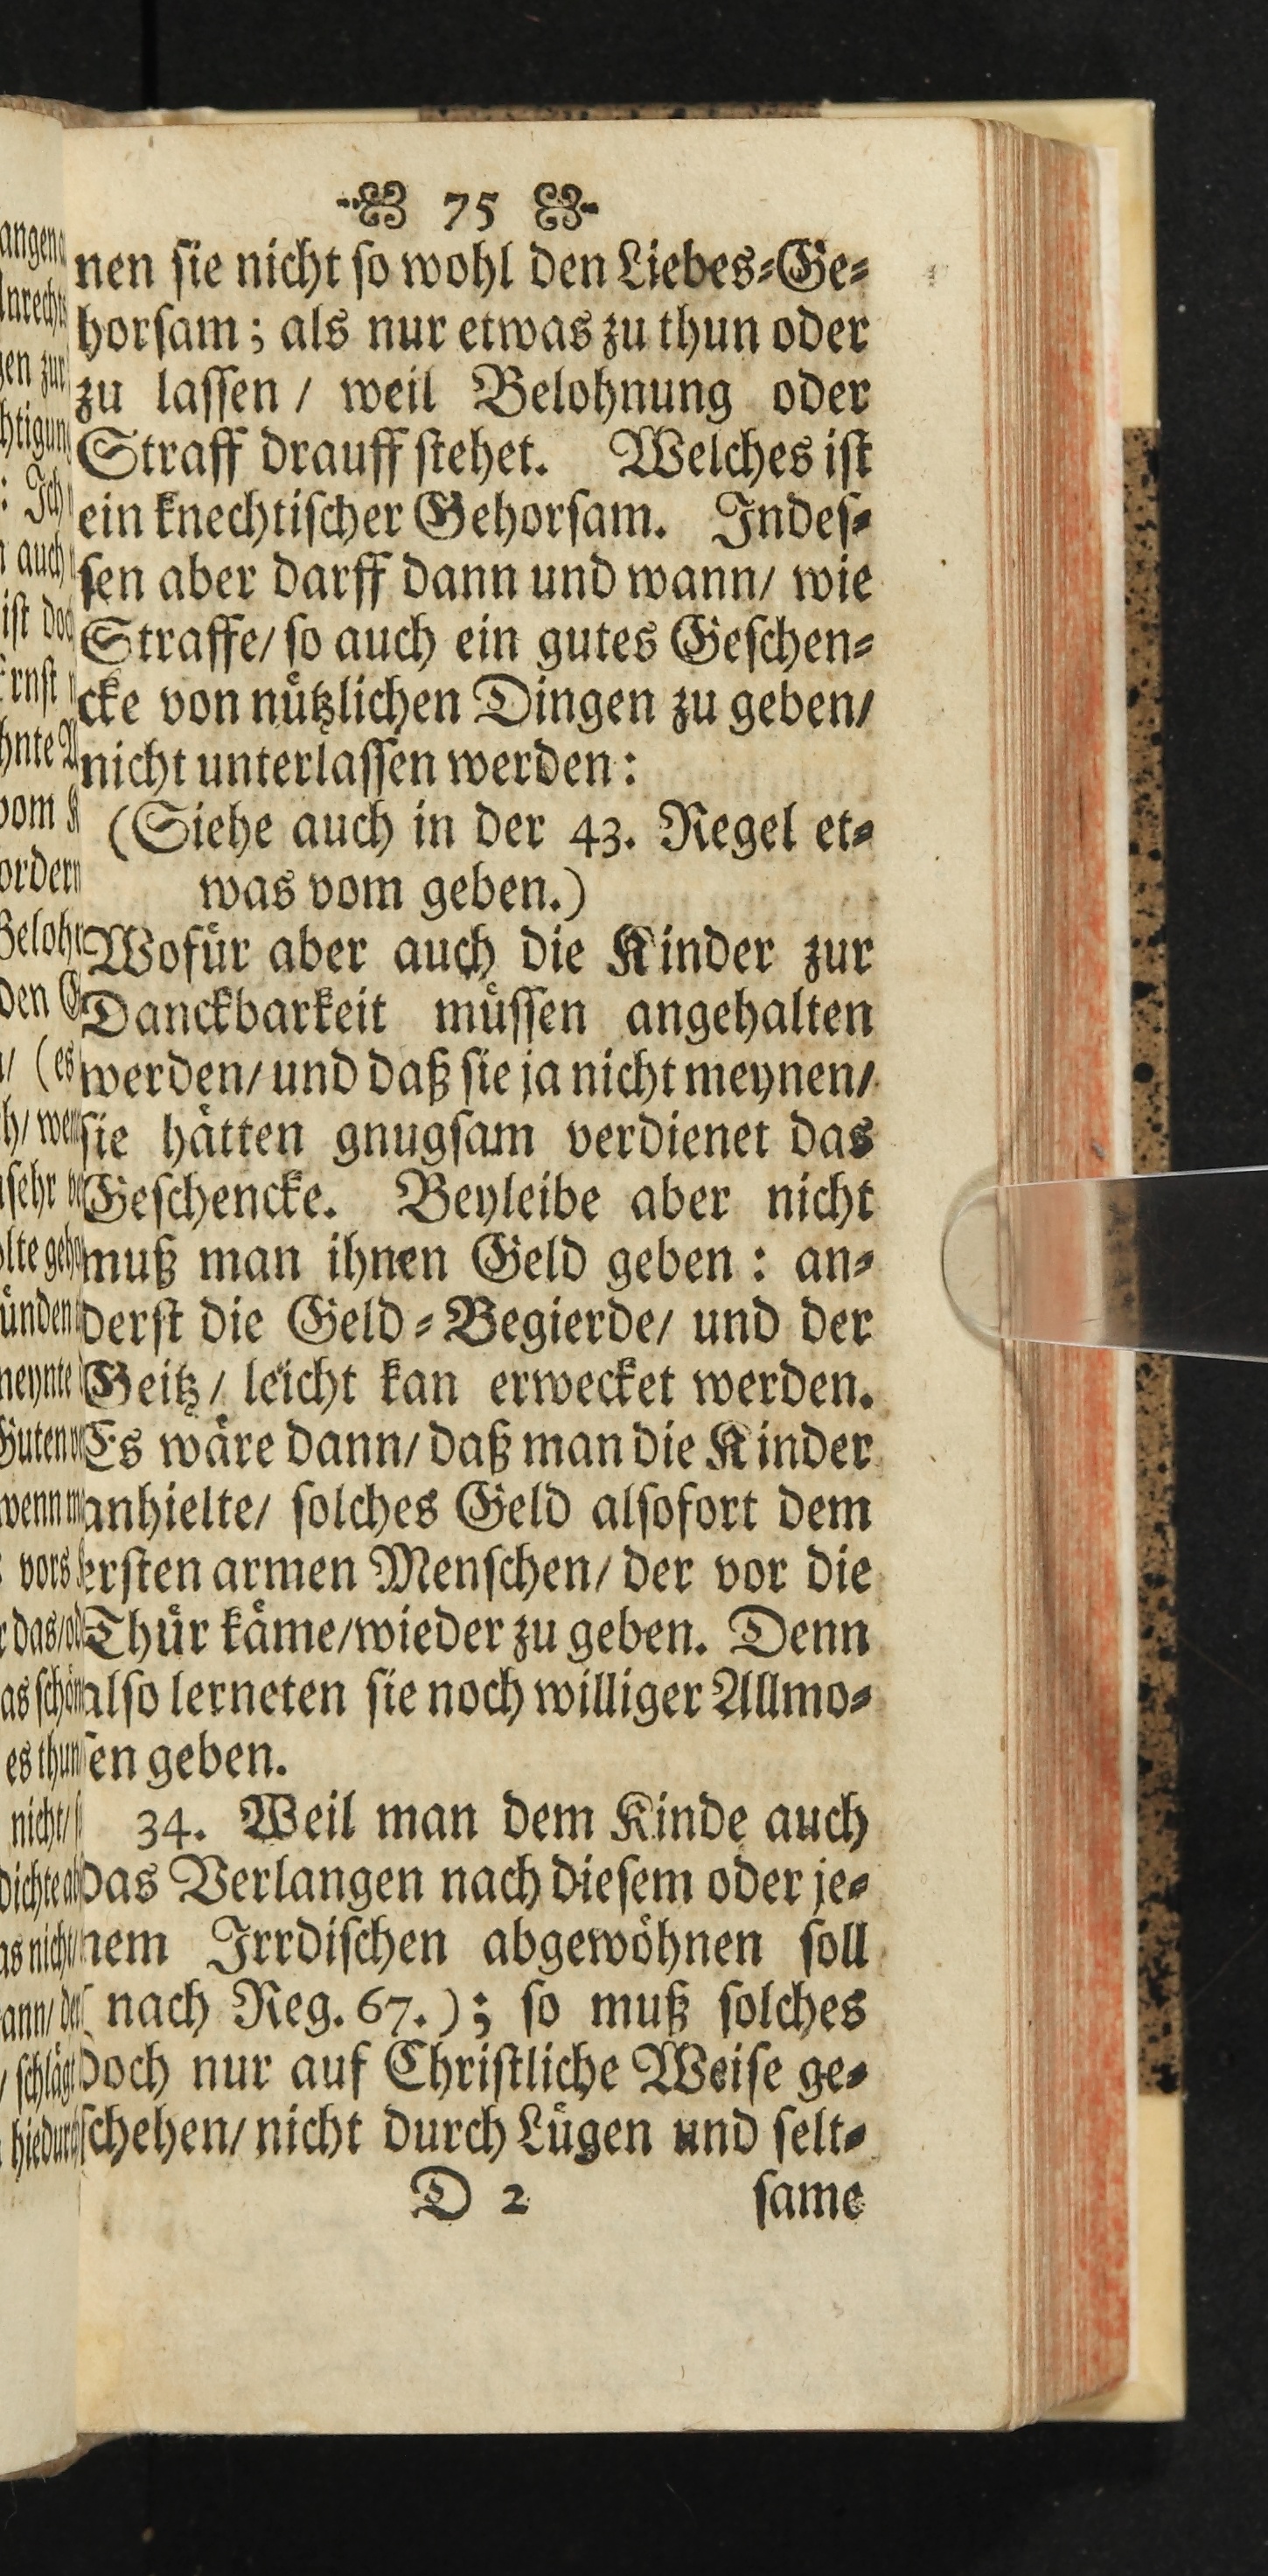 75
nen sie nicht so wohl den Liebes-Ge-
horsam; als nur etwas zu thun oder
zu lassen / weil Belohnung oder
Straff drauff stehet. Welches ist
ein knechtischer Gehorsam. Indes-
sen aber darff dann und wann/ wie
Straffe/ so auch ein gutes Geschen-
cke von nützlichen Dingen zu geben/
nicht unterlassen werden:
(Siehe auch in der 43. Regel et-
was vom geben.)
Wofür aber auch die Kinder zur
Danckbarkeit müssen angehalten
werden/ und daß sie ja nicht meynen/
sie hätten gnugsam verdienet das
Geschencke. Beyleibe aber nicht
muß man ihnen Geld geben: an-
derst die Geld-Begierde/ und der
Geitz/ leicht kan erwecket werden.
Es wäre dann/ daß man die Kinder
anhielte/ solches Geld alsofort dem
ersten armen Menschen/ der vor die
Thür käme/wieder zu geben. Denn
also lerneten sie noch williger Allmo-
sen geben.
34. Weil man dem Kinde auch
das Verlangen nach diesem oder je-
nem Irrdischen abgewöhnen soll
( nach Reg. 67.); so muß solches
doch nur auf Christliche Weise ge-
schehen/ nicht durch Lügen und selt-
D 2 same